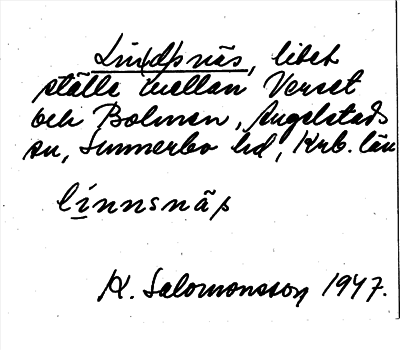 Lin(d)snäs, litet
ställe mellan Verset
och Bolmen, Angelstads
sn, Sunnerbo hd, Krb. län
linnsnäs
K. Salomonsson 1947.